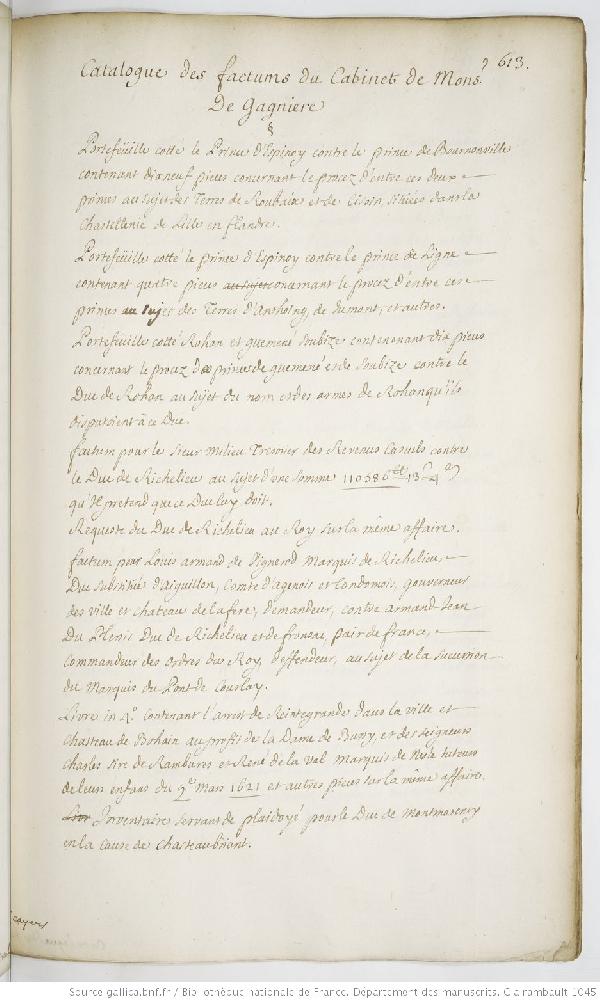 613.
Catalogue des factums du Cabinet de Mons.r
De Gagniere
§
Portefeüille cotté le Prince d'Espinoy contre le prince de Bournonville
contenant dix neuf pieces concernant le procez d'entre ces deux
princes au sujet des Terres de Roubaix et de Cisoin, sitüées dans la
Chastellenie de Lille en flandre.
Portefeüille cotté le prince d'Espinoy contre le prince de Ligne
contenant quatre pieces au sujet concernant le procez d'entre ces
princes au sujet des Terres d'Anthoing, de et autres.
Portefeüille cotté Rohan et guemené Soubize contenenant dix pieces
concernant le procez des princes de guemené et de Soubize contre le
Duc de Rohan au sujet du nom et des armes de Rohan qu'ils
disputoient à ce Duc.
factum pour le sieur Milieu Tresorier des Revenus Casuels contre
le Duc de Richelieu au sujet d'une somme
qu'il pretend que ce Duc luy doit.
Requeste du Duc de Richelieu au Roy sur la même affaire.
factum pour Louis armand de Vignerod Marquis de Richelieu,
Duc substitué d'aiguillon, Comte d'agenois et Condomois, gouverneur
des ville et chateau de la fere, demandeur, contre armand Jean
Du Plessis Duc de Richelieu et de fronsac, pair de france,
Commandeur des ordres du Roy, deffendeur, au sujet de la succession
du Marquis du Pont de Courlay.
Livre in 4.o contenant l'arrest de Reintegrande dans la ville et
Chasteau de Bohain au profit de la Dame de Bussy, et des seigneurs
Charles sire de Rambures et René de la Val marquis de Nesle tuteurs
de leurs enfans du 2.e Mars 1621 et autres pieces sur la même affaire.
Inventaire servant de plaidoyé pour le Duc de Montmorency
en la cause de Chasteaubriant.
Source gallica.bnf.fr / Bibliothèque nationale de France. Département des manuscrits. Clairambault 1045